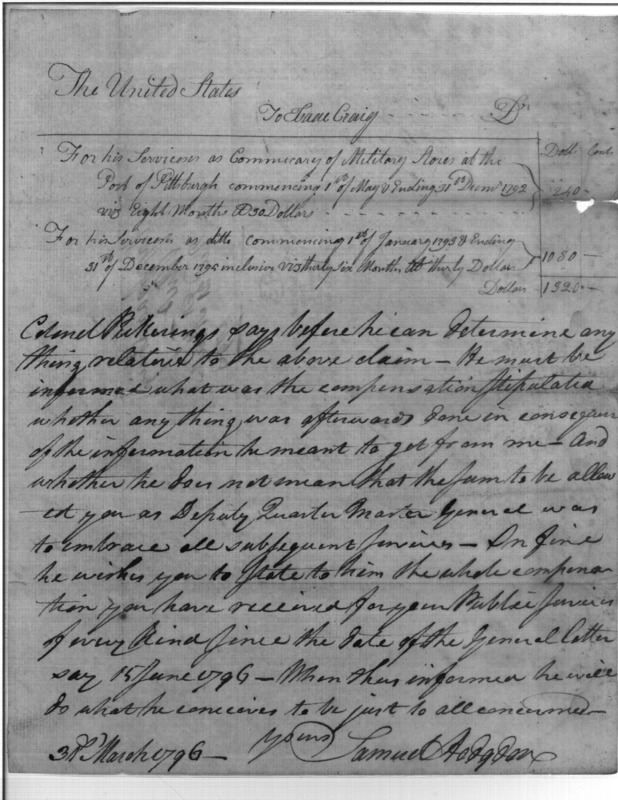 The United States
To Isaac Craig Dr.
Dolls Cents
For his Services as Commissary of Military Stores at the
Post of Pittburgh commencing 1st of May & Ending 31st Decemr 1792
viz Eight Months @ 30 Dollars 240 -
For his Services as ditto commencing 1st of January 1793 & Ending
31st of December 1795 inclusive viz thirty six Months @ thirty Dollars 1080 -
Dollars 1320 -
Colonel Pickerings says before he can determine any
thing relative to the above claim - He must be
informed what was the compensation stipulated
whether anything was afterwards done in consequence
of the information he meant to get from me - And
whether he does not mean that the sum to be allow
-ed you as Deputy Quarter Master General was
to embrace all subsequent services - In fine
he wishes you to state to him the whole compensa
tion you have received for your Publick Services
of every kind since the date of the General letter
say 15 June 1796 - When thus informed he will
do what he conceives to be just to all concerned -
yours
31st March 1796 - Samuel Hodgdon